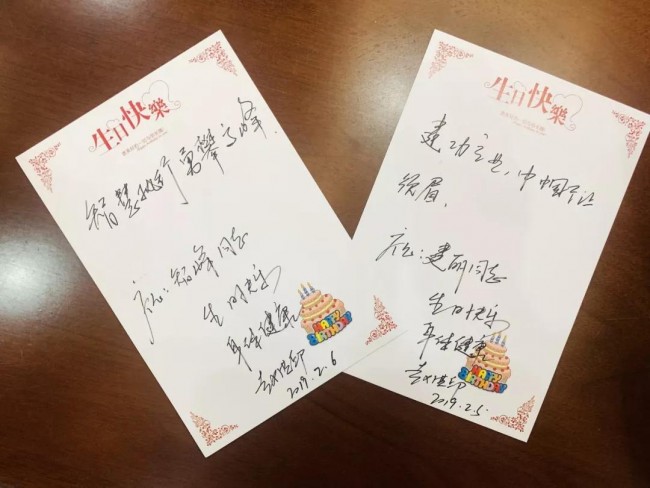 生日快樂
智慧 勇攀高峰
祝:智峰同志
生日快乐
身体健康
2019.2.6
HAPPY
BIRTHDAY
生日快樂
建功立业,巾帼不让
须眉。
祝:建丽同志
生日快乐
身体健康
2019.2.5.
HAPPY
BIRTHDAY